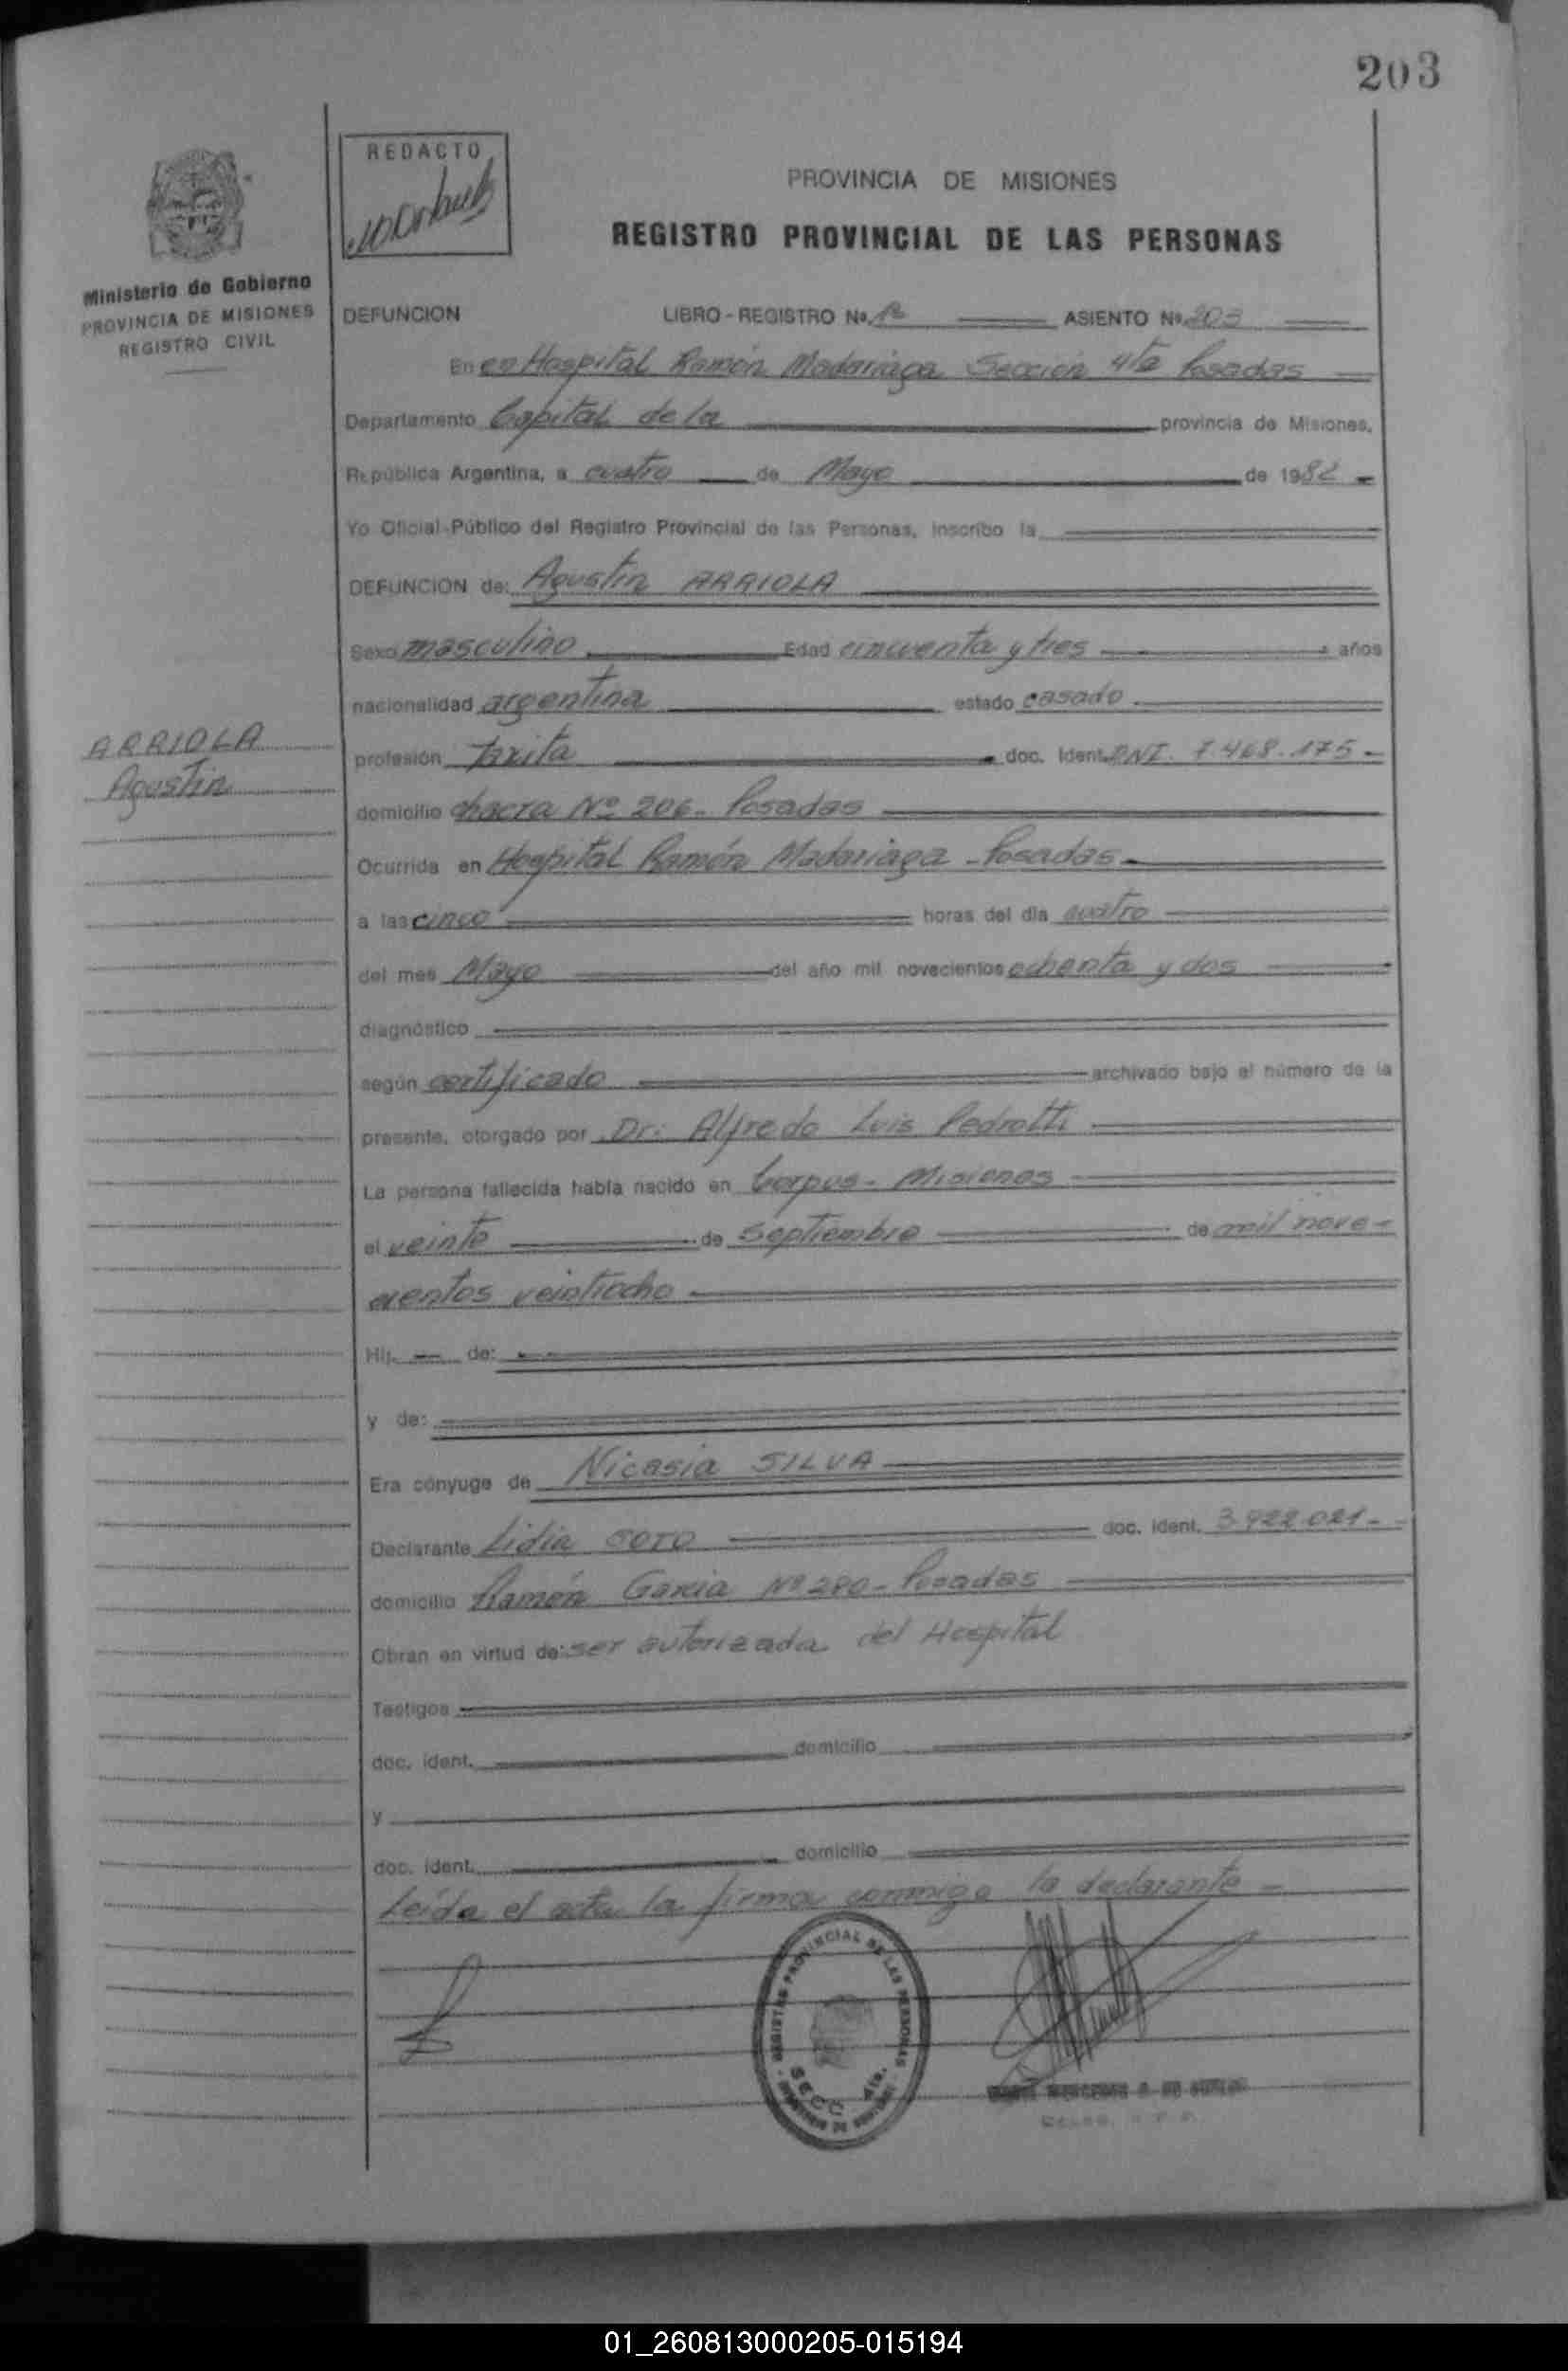 203
REDACTO
PROVINCIA DE MISIONES
REGISTRO PROVINCIAL DE LAS PERSONAS
Ministerio de Gobierno
PROVINCIA DE MISIONES
REGISTRO CIVIL
DEFUNCION LIBRO - REGISTRO No. ASIENTO No. 203
En en Hospital Ramón Madariaga Sección 4ta Posadas
Departamento Capital de la provincia de Misiones,
República Argentina, a cuatro de Mayo de 1982
Yo Oficial Público del Registro Provincial de las Personas, inscribo la
DEFUNCION de: Agustin ARRIOLA
Sexo masculino Edad cincuenta y tres años
nacionalidad argentina estado casado
ARRIOLA
Agustin
profesión Taxita doc. Ident. DNI. 7.468.175-
domicilio chacra No 206- Posadas
Ocurrida en Hospital Ramón Madariaga - Posadas-
a las cinco horas del día cuatro
del mes Mayo del año mil novecientos ochenta y dos
diagnóstico
según certificado archivado bajo el número de la
presente, otorgado por Dr: Alfredo Luis Pedrotti
La persona fallecida había nacido en Corpus- Misiones
el veinte de Septiembre de mil nove-
cientos veintiocho
Hij. de:
y de:
Era cónyuge de Nicasia SILVA
Declarante Lidia SOTO doc. ident. 3.922.021-
domicilio Ramón Garcia No 280- Posadas
Obran en virtud de: ser autorizada del Hospital
Testigos
doc. ident. domicilio
y
doc. ident. domicilio
Leída el acta la firma conmigo la declarante-
REGISTRO PROVINCIAL DE LAS PERSONAS
SECC. 4ta.
01_260813000205-015194